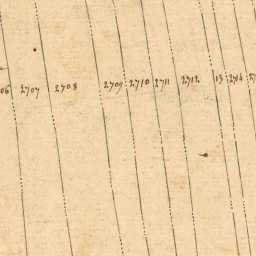 06 2707 2708 2709 2710 2711 2712 13 2714